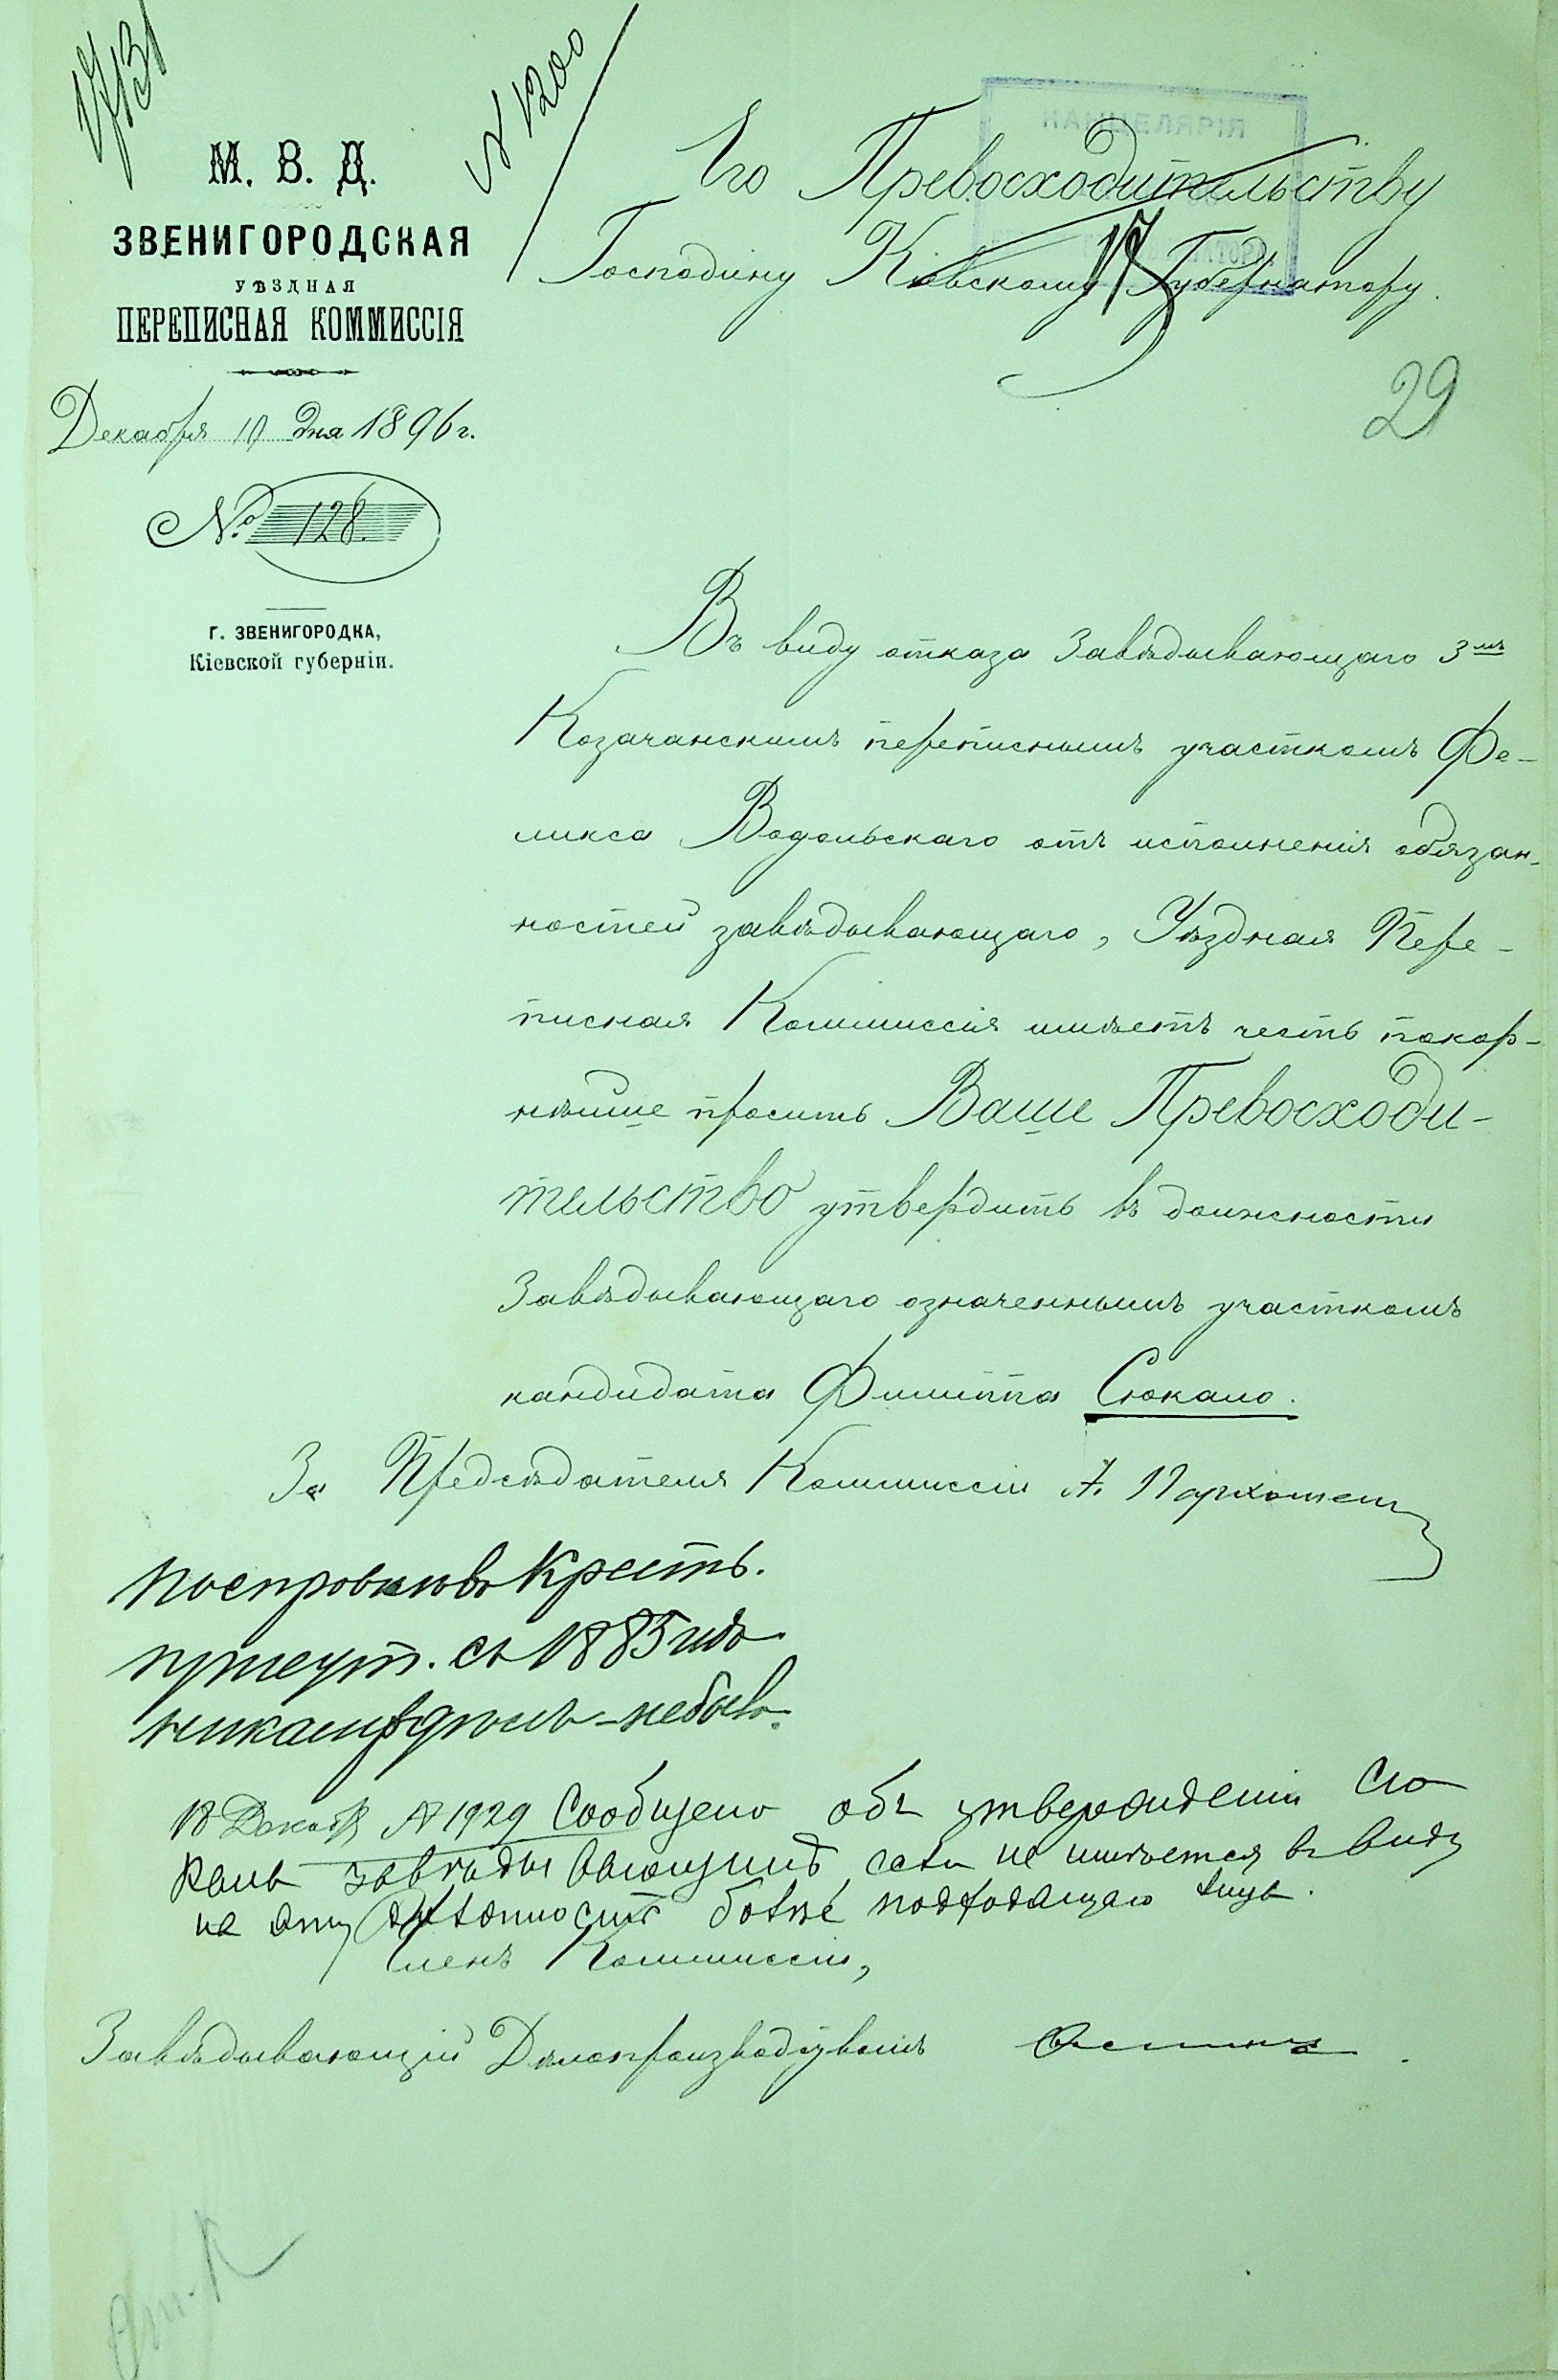 17131
№ 1200
М. В. Д.
ЗВЕНИГОРОДСКАЯ
УѢЗДНАЯ
ПЕРЕПИСНАЯ КОММИССІЯ
Декабря 10 дня 1896 г.
№ 128.
Г. ЗВЕНИГОРОДКА,
Кіевской губерніи.
КАНЦЕЛЯРІЯ
Его Превосходительству
Господину Кіевскому Губернатору.
17
29
Въ виду отказа Завѣдывающаго 3мъ
Козачанскимъ переписнымъ участкомъ Фе-
ликса Водольскаго отъ исполненія обязан-
ностей завѣдывающаго, Уѣздная Пере-
писная Коммиссія имѣетъ честь покор-
нѣйше просить Ваше Превосходи-
тельство утвердить въ должности
Завѣдывающаго означеннымъ участкомъ
кандидата Филиппа Сюкало.
За Предсѣдателя Коммиссіи А. Пархоменко
По справкѣ въ Крест.
присут. съ 1885 года
18 Декабр № 1929 Сообщено объ утвержденіи Сю
кало завѣдывающимъ, если не имѣется въ виду
на эту должность болѣе подходящаго лица.
Членъ Коммиссіи,
Завѣдывающій Дѣлопроизводствомъ